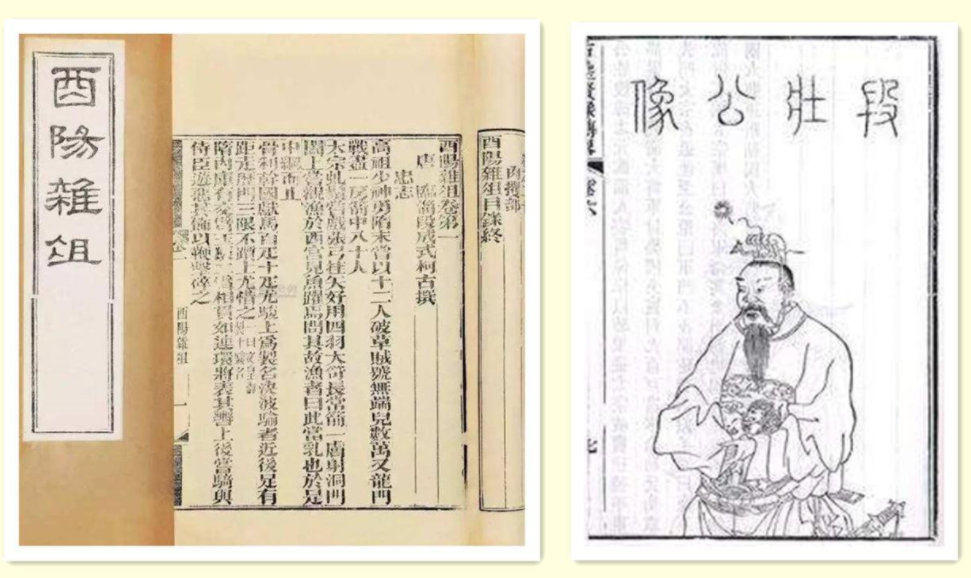 酉陽雜俎
肉攫部
酉陽雜俎目錄終
酉陽雜俎卷第一
唐 臨淄段成式柯古撰
忠志
高祖少神勇隋末嘗以十二人破草賊號無端兒數萬又龍門
戰盡一房箭中八十人
太宗虬鬚嘗戲張弓挂矢好用四羽大笴長常箭一膚射洞門
闔上嘗觀漁於西宮見魚躍焉問其故漁者曰此當乳也於是
中網而止
骨利幹國獻馬百疋十疋尤駿上爲製名決波騟者近後足有
距走歷門三限不躓上尤惜之
隋內庫有交臂玉猿二臂相貫如連環將表其轡上後嘗騎與
侍臣遊惡其飾以鞭擊碎之
酉陽雜俎
一
段壯公像
七